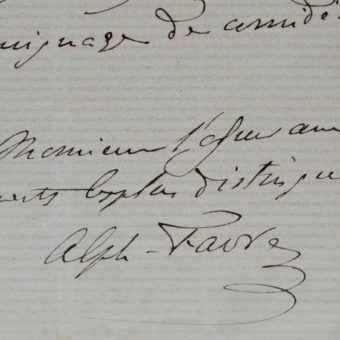 moignage de considé
Monsieur l'assuran
ments les plus distingué
Alph. Favre